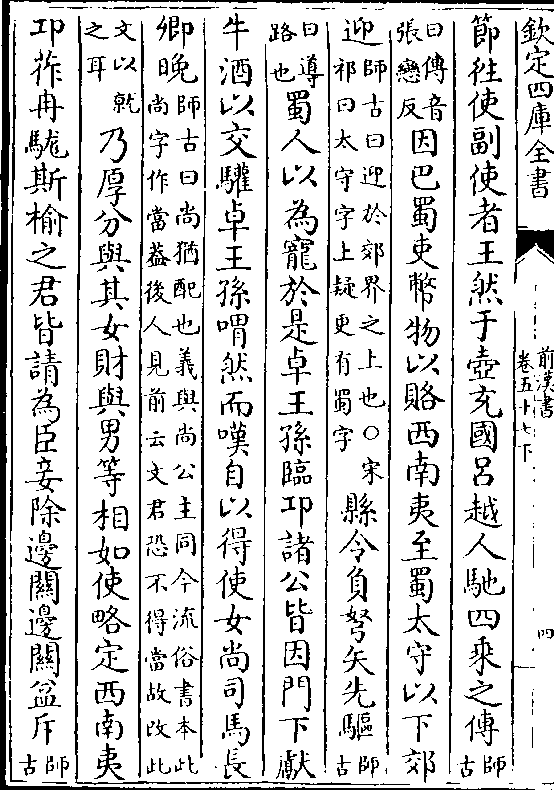 欽定四庫全書
前漢書
卷五十七下
四
節往使副使者王然于壺充國呂越人馳四乘之傳師古
曰傳音張戀反因巴蜀吏幣物以賂西南夷至蜀太守以下郊
迎師古曰迎於郊界之上也○宋祁曰太守字上疑更有蜀字縣令負弩矢先驅師古
曰導路也蜀人以為寵於是卓王孫臨卭諸公皆因門下獻
牛酒以交驩卓王孫喟然而嘆自以得使女尚司馬長
卿晚師古曰尚猶配也義與尚公主同今流俗書本此尚字作當葢後人見前云文君恐不得當故改此
文以就之耳乃厚分與其女財與男等相如使略定西南夷
卭莋冉駹斯榆之君皆請為臣妾除邊關邊關益斥師古